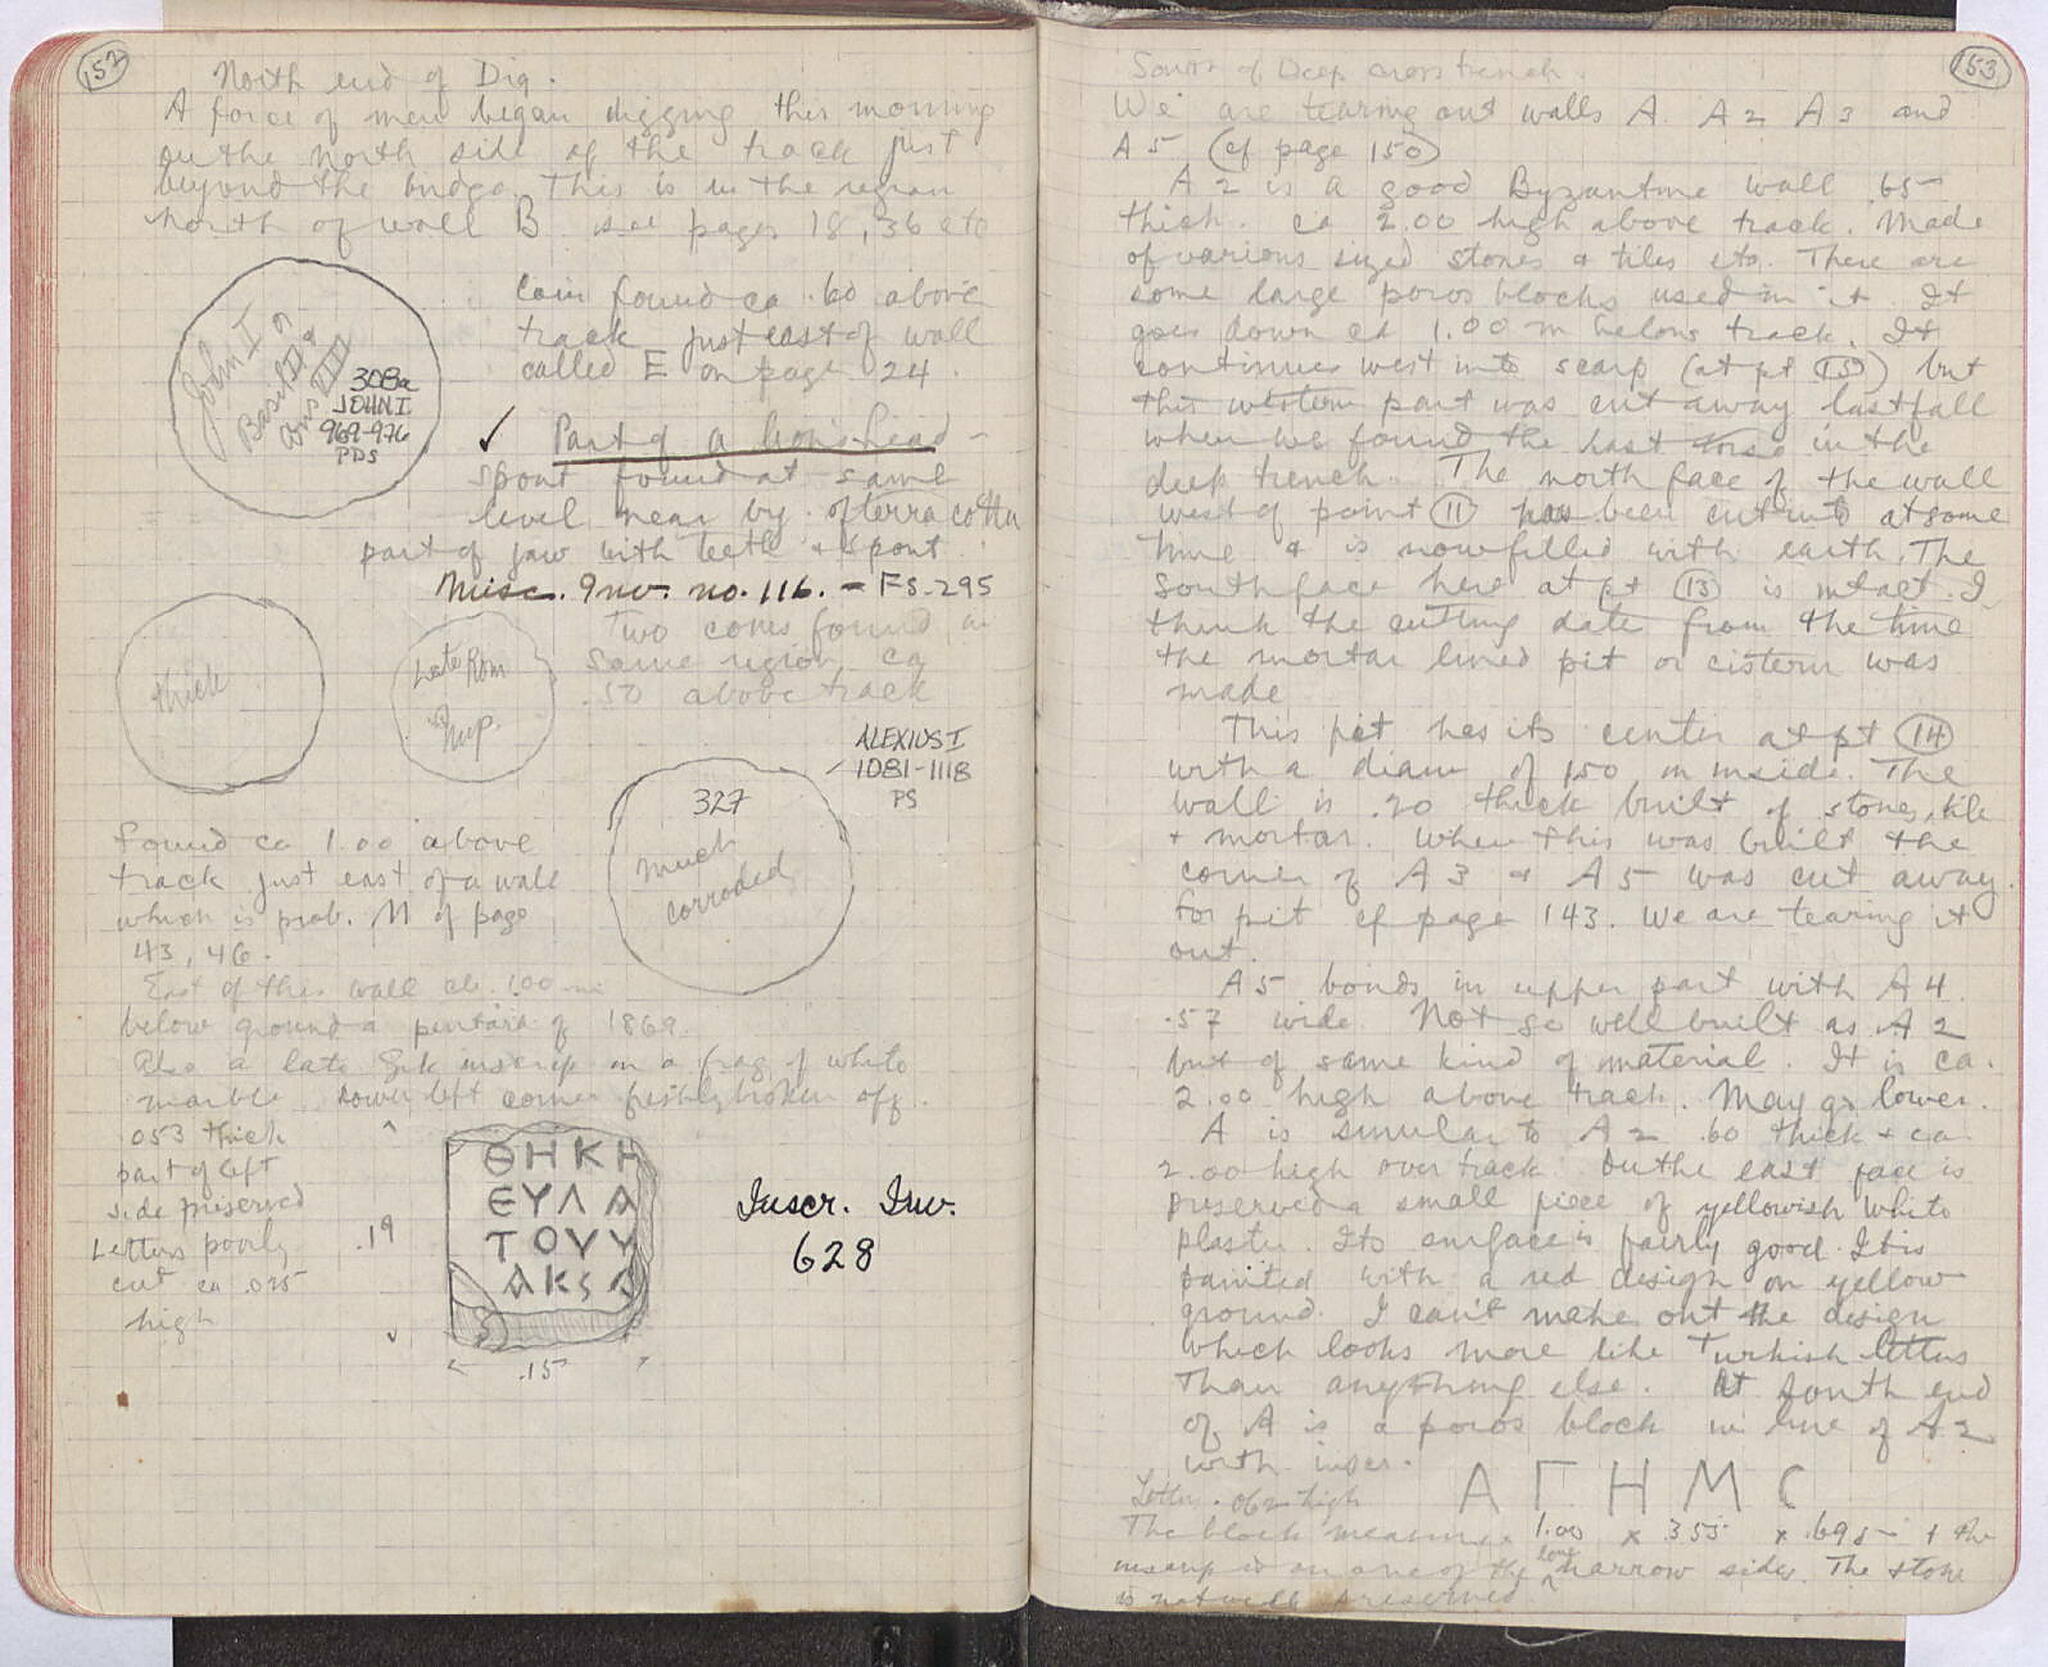 152
North end of Dig.
A force of men began digging this morning
on the north side of the track just
beyond the bridge. This is in the region
north of wall B see pages 18, 36 etc
John I or
Basil II &
Cons VIII
308a
JOHN I
969-976
PDS
Coin found ca .60 above
track just east of wall
called E on page 24.
✓ Part of a lion's head-
spout found at same
level near by. of terra cotta
part of jaw with teeth & spout
Misc. Inv. no. 116. - FS-295
Two coins found in
same region ca
.50 above track
thick
Late Rom
Imp.
ALEXIUS I
1081-1118
PS
327
much
corroded
Found ca 1.00 above
track just east of a wall
which is prob. M of page
43, 46.
East of this wall ca. 1.00 m
below ground a pentara of 1869.
Also a late Grk inscrip on a frag. of white
marble lower left corner freshly broken off.
.053 thick
part of left
side preserved
Letters poorly
cut ca .025
high
.19
ΘΗΚΗ
ЄΥΛΑ
ΤΟΥΥ
ΑΚSΑ
.15
Inscr. Inv.
628
153
South of Deep cross trench.
We are tearing out walls A A2 A3 and
A5 (cf page 150)
A2 is a good Byzantine wall .65
thick. ca 2.00 high above track. Made
of various sized stones & tiles etc. There are
some large poros blocks used in it. It
goes down ca 1.00 m below track. It
continues west into scarp (at pt 15) but
this western part was cut away last fall
when we found the last torso in the
deep trench. The north face of the wall
west of point 11 has been cut into at some
time & is now filled with earth. The
south face here at pt 13 is intact. I
think the cutting date from the time
the mortar lined pit or cistern was
made
This pit has its center at pt 14
with a diam of 1.50 m inside. The
wall is .20 thick built of stones, tile
& mortar. When this was built the
corner of A3 & A5 was cut away.
for pit cf page 143. We are tearing it
out.
A5 bonds in upper part with A4
.57 wide. Not so well built as A2
but of same kind of material. It is ca.
2.00 high above track. May go lower.
A is similar to A2 .60 thick & ca
2.00 high over track. On the east face is
preserved a small piece of yellowish white
plaster. Its surface is fairly good. It is
painted with a red design on yellow
ground. I can't make out the design
which looks more like Turkish letters
than anything else. At south end
of A is a poros block in line of A2
with inscr. Α Γ Η Μ C
Letter .062 high
The block measures 1.00 x .355 x .695 & the
inscrip is on one of the long narrow sides. The stone
is not well preserved.